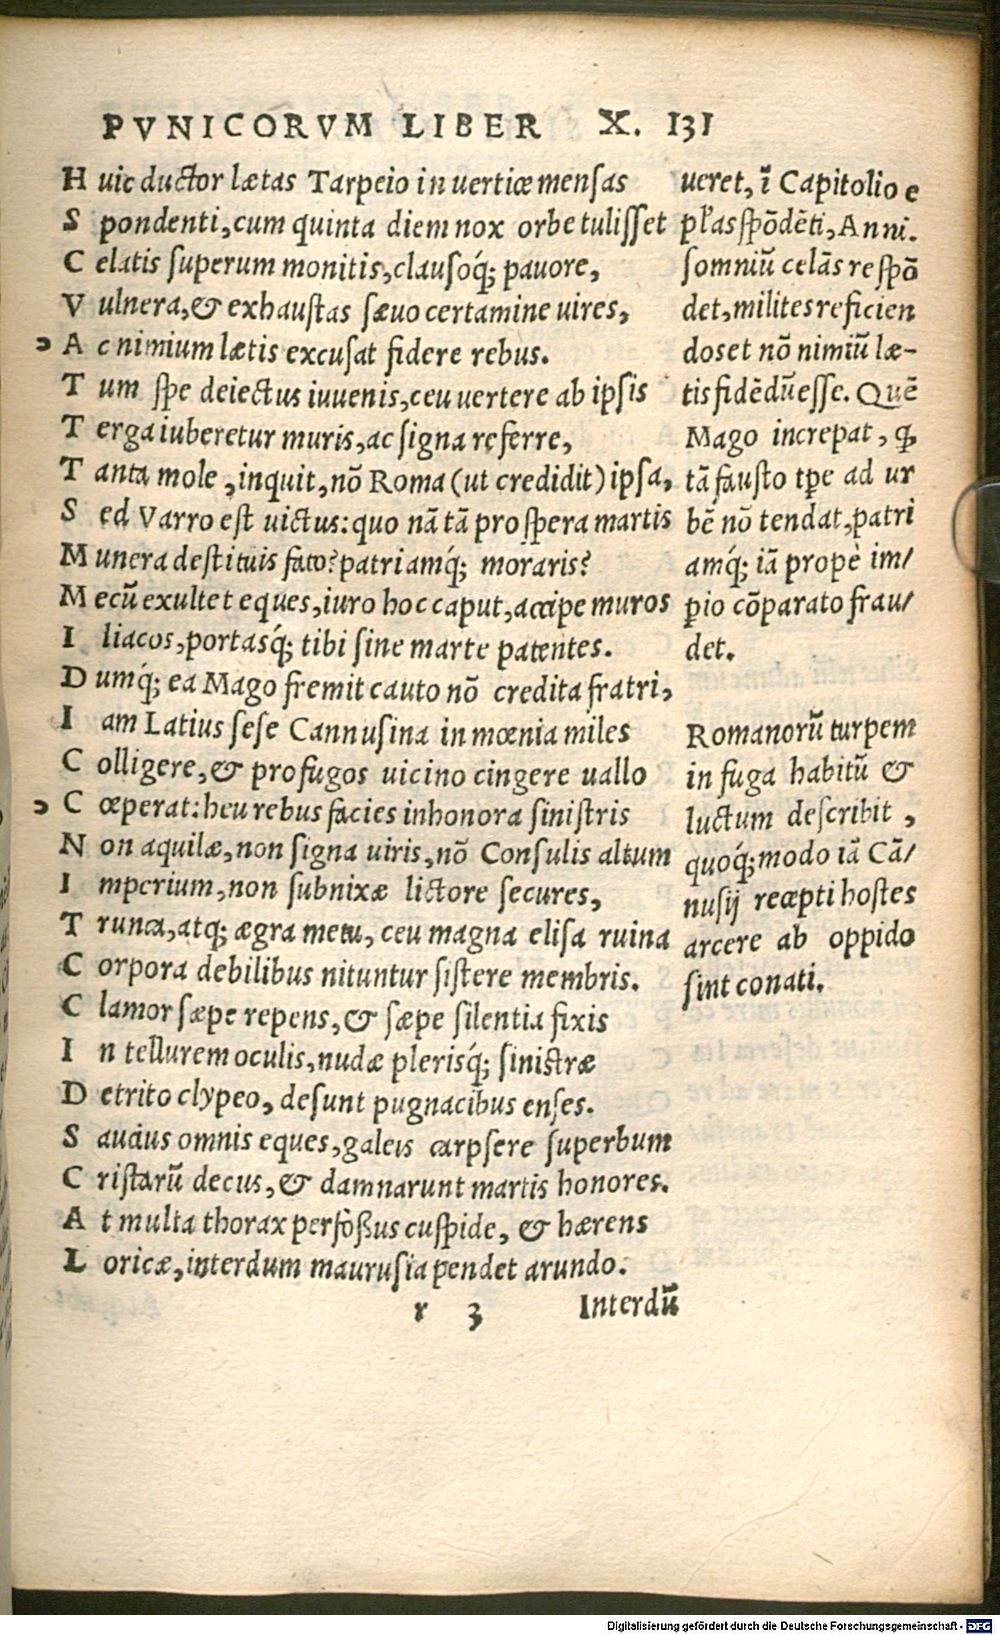 PVNICORVM LIBER X. 131
H uic ductor lætas Tarpeio in uertice mensas
S pondenti, cum quinta diem nox orbe tulisset
C elatis superum monitis, clausoq́; pauore,
V ulnera, & exhaustas sæuo certamine uires,
A c nimium lætis excusat fidere rebus.
T um spe deiectus iuuenis, ceu uertere ab ipsis
T erga iuberetur muris, ac signa referre,
T anta mole, inquit, nō Roma (ut credidit) ipsa,
S ed Varro est uictus: quo nā tā prospera martis
M unera destituis fato? patriamq́; moraris?
M ecū exultet eques, iuro hoc caput, accipe muros
I liacos, portasq́; tibi sine marte patentes.
D umq́; ea Mago fremit cauto nō credita fratri,
I am Latius sese Cannusina in mœnia miles
C olligere, & profugos uicino cingere uallo
C œperat: heu rebus facies inhonora sinistris
N on aquilæ, non signa uiris, nō Consulis altum
I mperium, non subnixæ lictore secures,
T runca, atq; ægra metu, ceu magna elisa ruina
C orpora debilibus nituntur sistere membris.
C lamor sæpe repens, & sæpe silentia fixis
I n tellurem oculis, nudæ plerisq́; sinistræ
D etrito clypeo, desunt pugnacibus enses.
S aucius omnis eques, galeis carpsere superbum
C ristarū decus, & damnarunt martis honores.
A t multa thorax perfòßus cuspide, & hærens
L oricæ, interdum maurusia pendet arundo.
r 3 Interdū
ueret, ĩ Capitolio e
pl̃as spōdēti, Anni.
somniū celās respō
det, milites reficien
dos et nō nimiū læ-
tis fidēdū esse. Quē
Mago increpat, ꝙ
tā fausto tꝑe ad ur
bē nō tendat, patri
amq́; iā propè im/
ꝑio cōparato frau/
det.
Romanorū turpem
in fuga habitū &
luctum describit,
quoq́; modo iā Cā/
nusij recepti hostes
arcere ab oppido
sint conati.
Digitalisierung gefördert durch die Deutsche Forschungsgemeinschaft - DFG